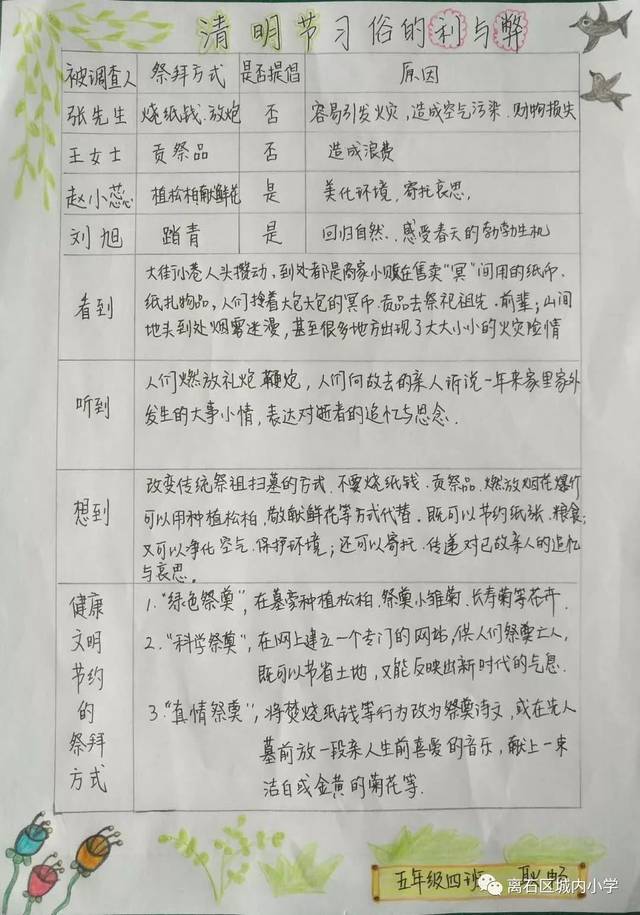 清明节习俗的利与弊
被调查人 祭拜方式 是否提倡 原因
张先生 烧纸钱.放炮 否 容易引发火灾,造成空气污染.财物损失
王女士 贡祭品 否 造成浪费
赵小蕊 植松柏献鲜花 是 美化环境,寄托哀思,
刘旭 踏青 是 回归自然..感受春天的勃勃生机
看到
大街小巷人头攒动,到处都是商家小贩在售卖"冥"间用的纸币.
纸扎物品,人们拎着大包大包的冥币.贡品去祭祀祖先.前辈;山间
地头到处烟雾迷漫,甚至很多地方出现了大大小小的火灾险情
听到
人们燃放礼炮鞭炮,人们向故去的亲人诉说一年来家里家外
发生的大事小情,表达对逝者的追忆与思念.
想到
改变传统祭祖扫墓的方式.不要烧纸钱.贡祭品.燃放烟花爆竹
可以用种植松柏,敬献鲜花等方式代替.既可以节约纸张.粮食;
又可以净化空气.保护环境;还可以寄托.传递对已故亲人的追忆
与哀思.
健康
文明
节约
的
祭拜
方式
1."绿色祭奠",在墓旁种植松柏.祭奠小雏菊.长寿菊等花卉.
2."科学祭奠",在网上建立一个专门的网站,供人们祭奠亡人,
既可以节省土地,又能反映出新时代的气息.
3."真情祭奠",将焚烧纸钱等行为改为祭奠诗文,或在先人
墓前放一段亲人生前喜爱的音乐,献上一束
洁白或金黄的菊花等.
五年级四班 耿畅
离石区城内小学